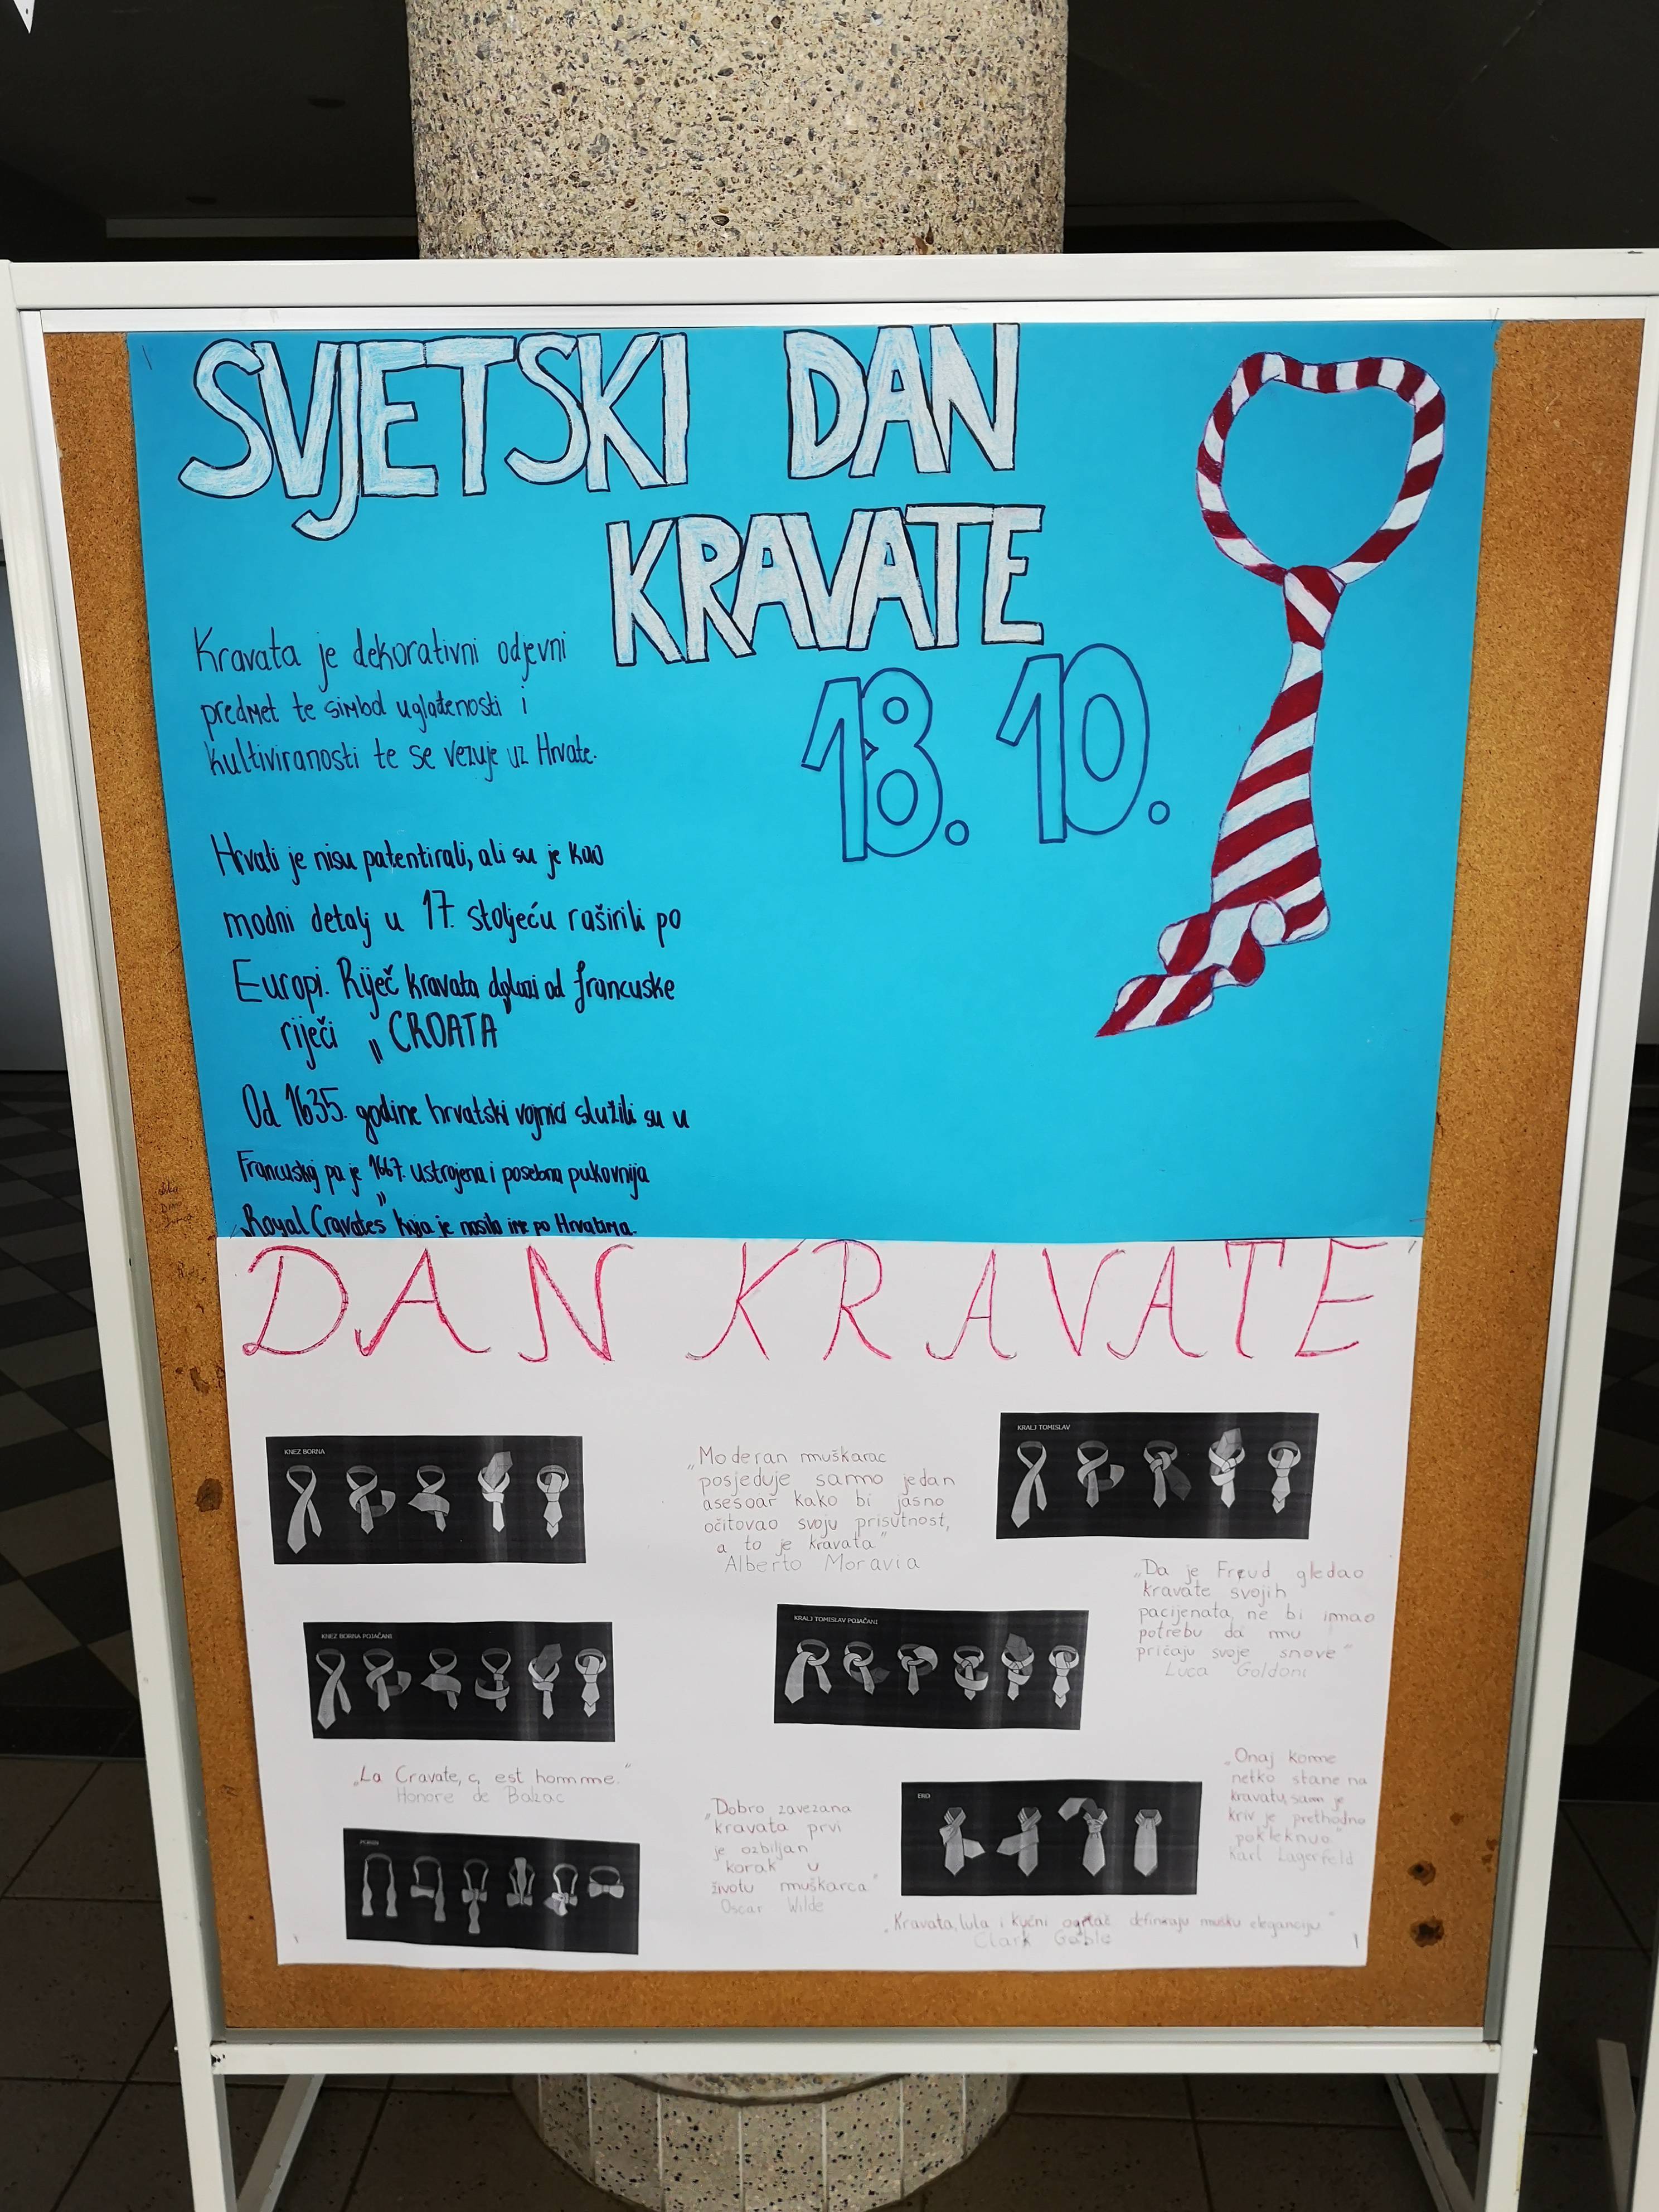 SVJETSKI DAN
KRAVATE
18. 10.
Kravata je dekorativni odjevni
predmet te simbol uglađenosti i
kultiviranosti te se vezuje uz Hrvate.
Hrvati je nisu patentirali, ali su je kao
modni detalj u 17. stoljeću raširili po
Europi. Riječ kravata dolazi od francuske
riječi „CROATA"
Od 1635. godine hrvatski vojnici služili su u
Francuskoj pa je 1667. ustrojena i posebna pukovnija
„Royal Cravates" koja je nosila ime po Hrvatima.
DAN KRAVATE
KNEZ BORNA
„Moderan muškarac
posjeduje samo jedan
asesoar kako bi jasno
očitovao svoju prisutnost,
a to je kravata"
Alberto Moravia
KRALJ TOMISLAV
„Da je Freud gledao
kravate svojih
pacijenata, ne bi imao
potrebu da mu
pričaju svoje snove"
Luca Goldoni
KNEZ BORNA POJAČANI
KRALJ TOMISLAV POJAČANI
„La Cravate, c, est homme."
Honore de Balzac
„Dobro zavezana
kravata prvi
je ozbiljan
korak u
životu muškarca"
Oscar Wilde
„Onaj kome
netko stane na
kravatu, sam je
kriv je prethodno
pokleknuo"
Karl Lagerfeld
„Kravata, lula i kućni ogrtač definiraju mušku eleganciju"
Clark Gable